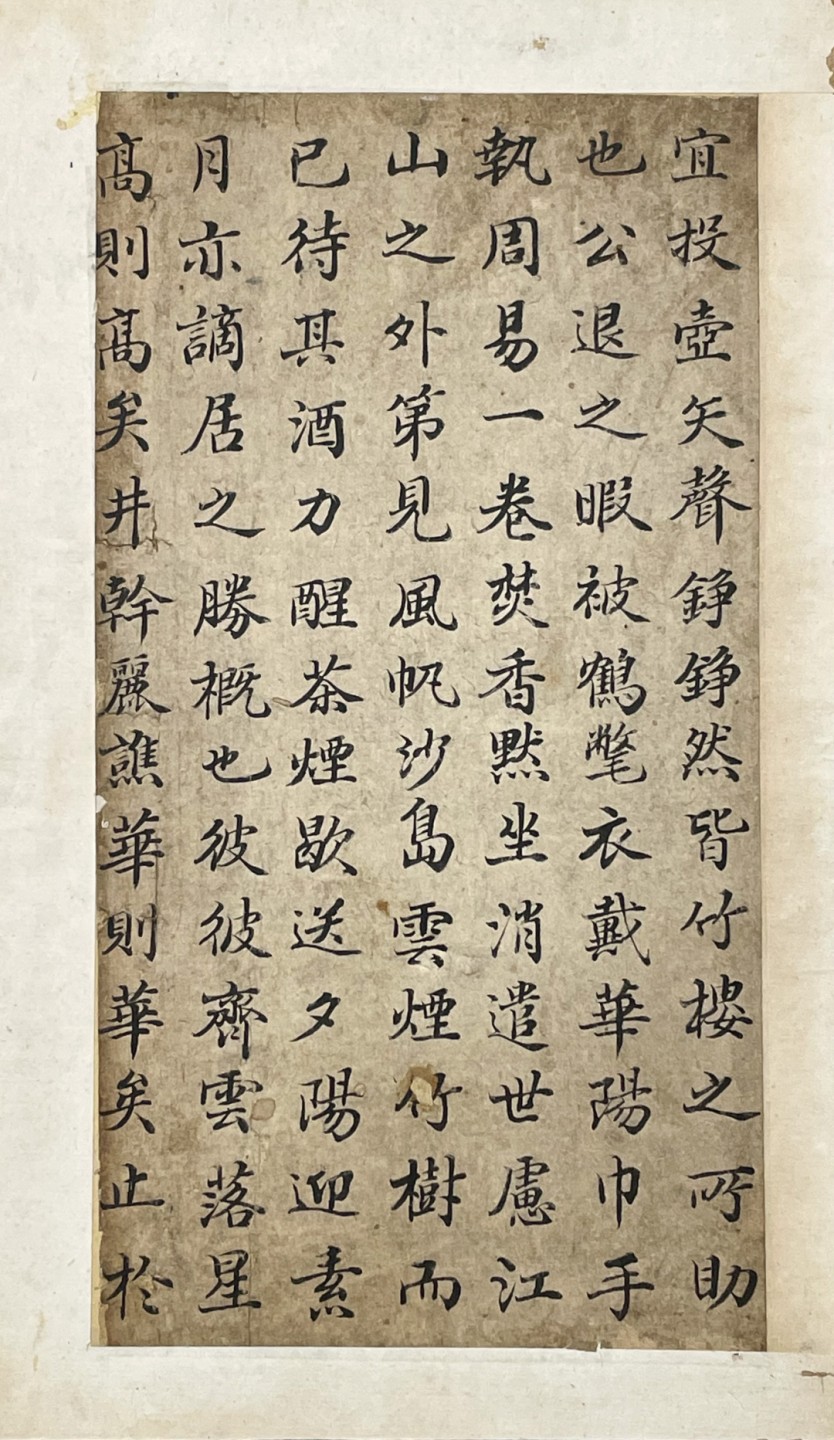 宜投壺矢聲錚錚然皆竹樓之所助
也公退之暇被鶴氅衣戴華陽巾手
執周易一卷焚香默坐消遣世慮江
山之外第見風帆沙島雲煙竹樹而
已待其酒力醒茶煙歇送夕陽迎素
月亦謫居之勝概也彼彼齊雲落星
高則高矣井幹麗譙華則華矣止於